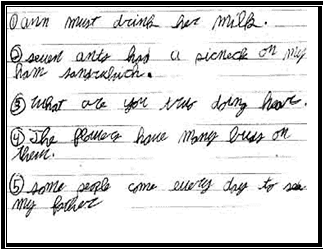 ① ann must drink her milk.
② seven ants had a picneck on my
ham sandwich.
③ What are you doing here.
④ The flowers have many buds on
them.
⑤ some people come every day to see
my father